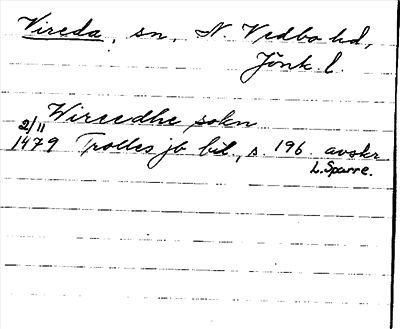 Vireda, sn, N. Vedbo hd,
Jönk. l.
Wireedhe sokn
2/11
1479 Trolles jb bil., s. 196. avskr
L. Sparre.